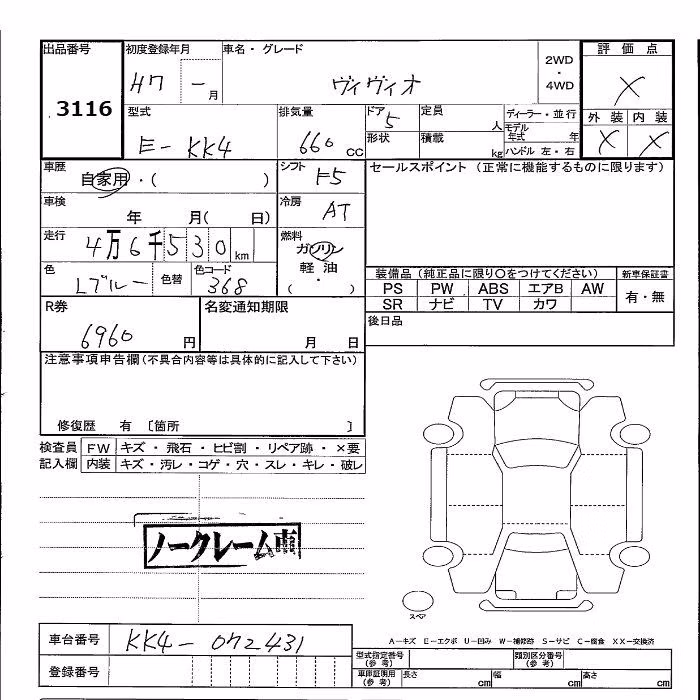 出品番号
3116
初度登録年月
H7 - 月
車名・グレード
ヴィヴィオ
2WD
・
4WD
評価点
X
外装 内装
X X
型式
E-KK4
排気量
660 cc
ドア
5
形状
定員 人
積載 kg
ディーラー・並行
モデル年式 年
ハンドル 左・右
車歴
自家用・( )
シフト
F5
セールスポイント (正常に機能するものに限ります)
車検
年 月( 日)
冷房
AT
走行
4万6千530km
燃料
ガソリン
・
軽油
( )
色
Lブルー
色替
色コード
368
装備品 (純正品に限り○をつけてください)
新車保証書
PS PW ABS エアB AW
SR ナビ TV カワ
有・無
R券
6960 円
名変通知期限
月 日
後日品
注意事項申告欄(不具合内容等は具体的に記入して下さい)
修復歴 有 〔箇所 〕
検査員
記入欄
FW キズ・飛石・ヒビ割・リペア跡・×要
内装 キズ・汚レ・コゲ・穴・スレ・キレ・破レ
ノークレーム
スペア
A-キズ E-エクボ U-凹み W-補修跡 S-サビ C-腐食 XX-交換済
車台番号
KK4-072431
登録番号
型式指定番号
(参考)
類別区分番号
(参考)
車庫証明用
(参考)
長さ cm 幅 cm 高さ cm